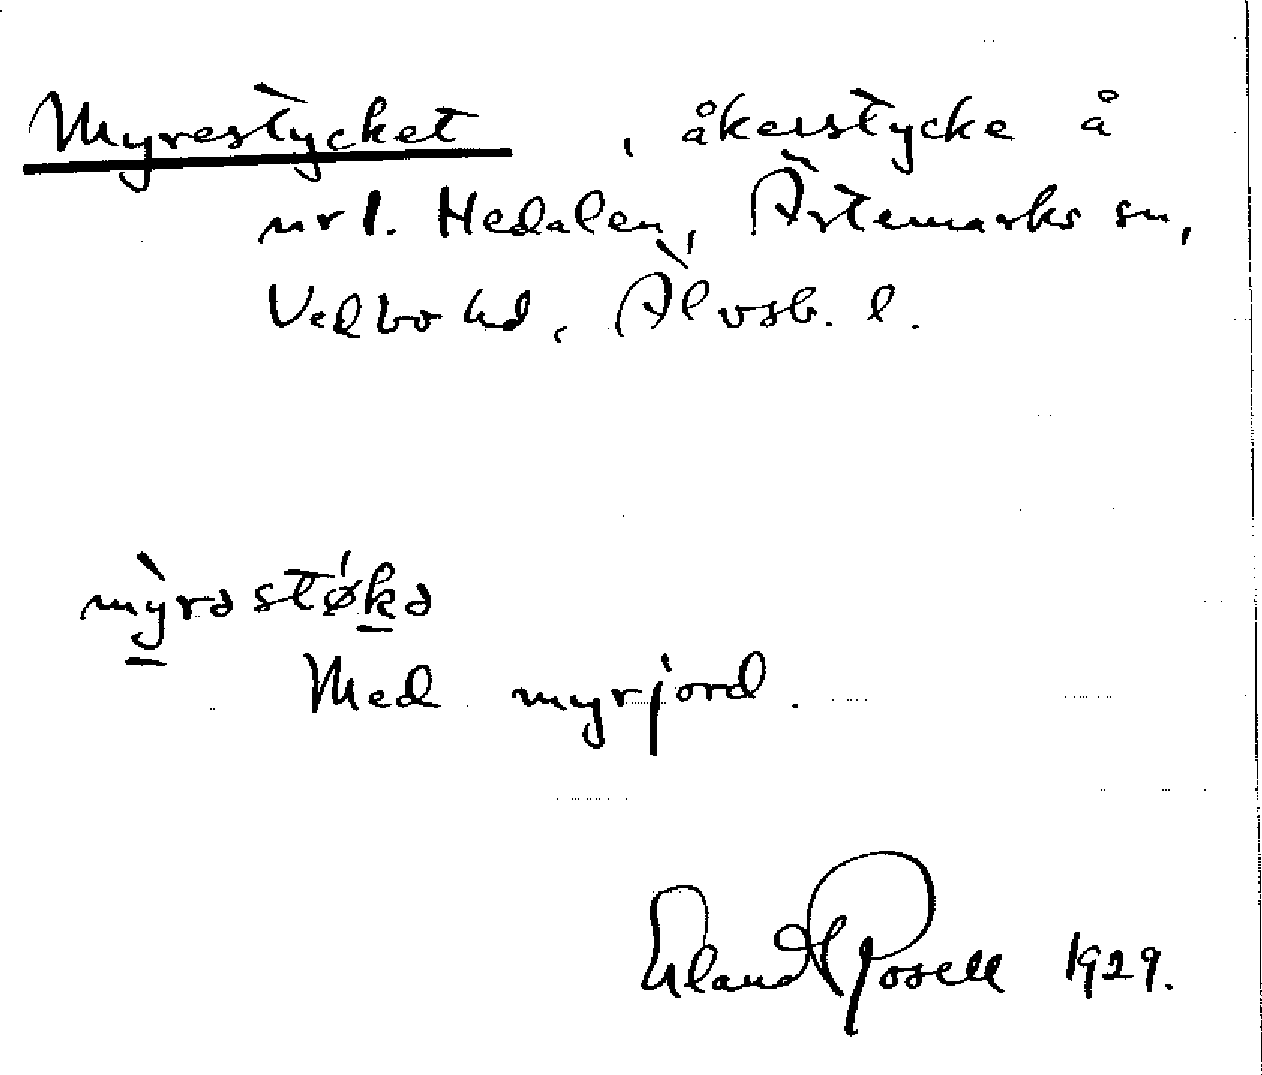 Myrestycket, åkerstycke å
nr 1. Hedalen, Ärtemarks sn,
Vedbo hd, Älvsb. l.
mỳrə støkə
Med myrjord.
Erland Rosell 1929.